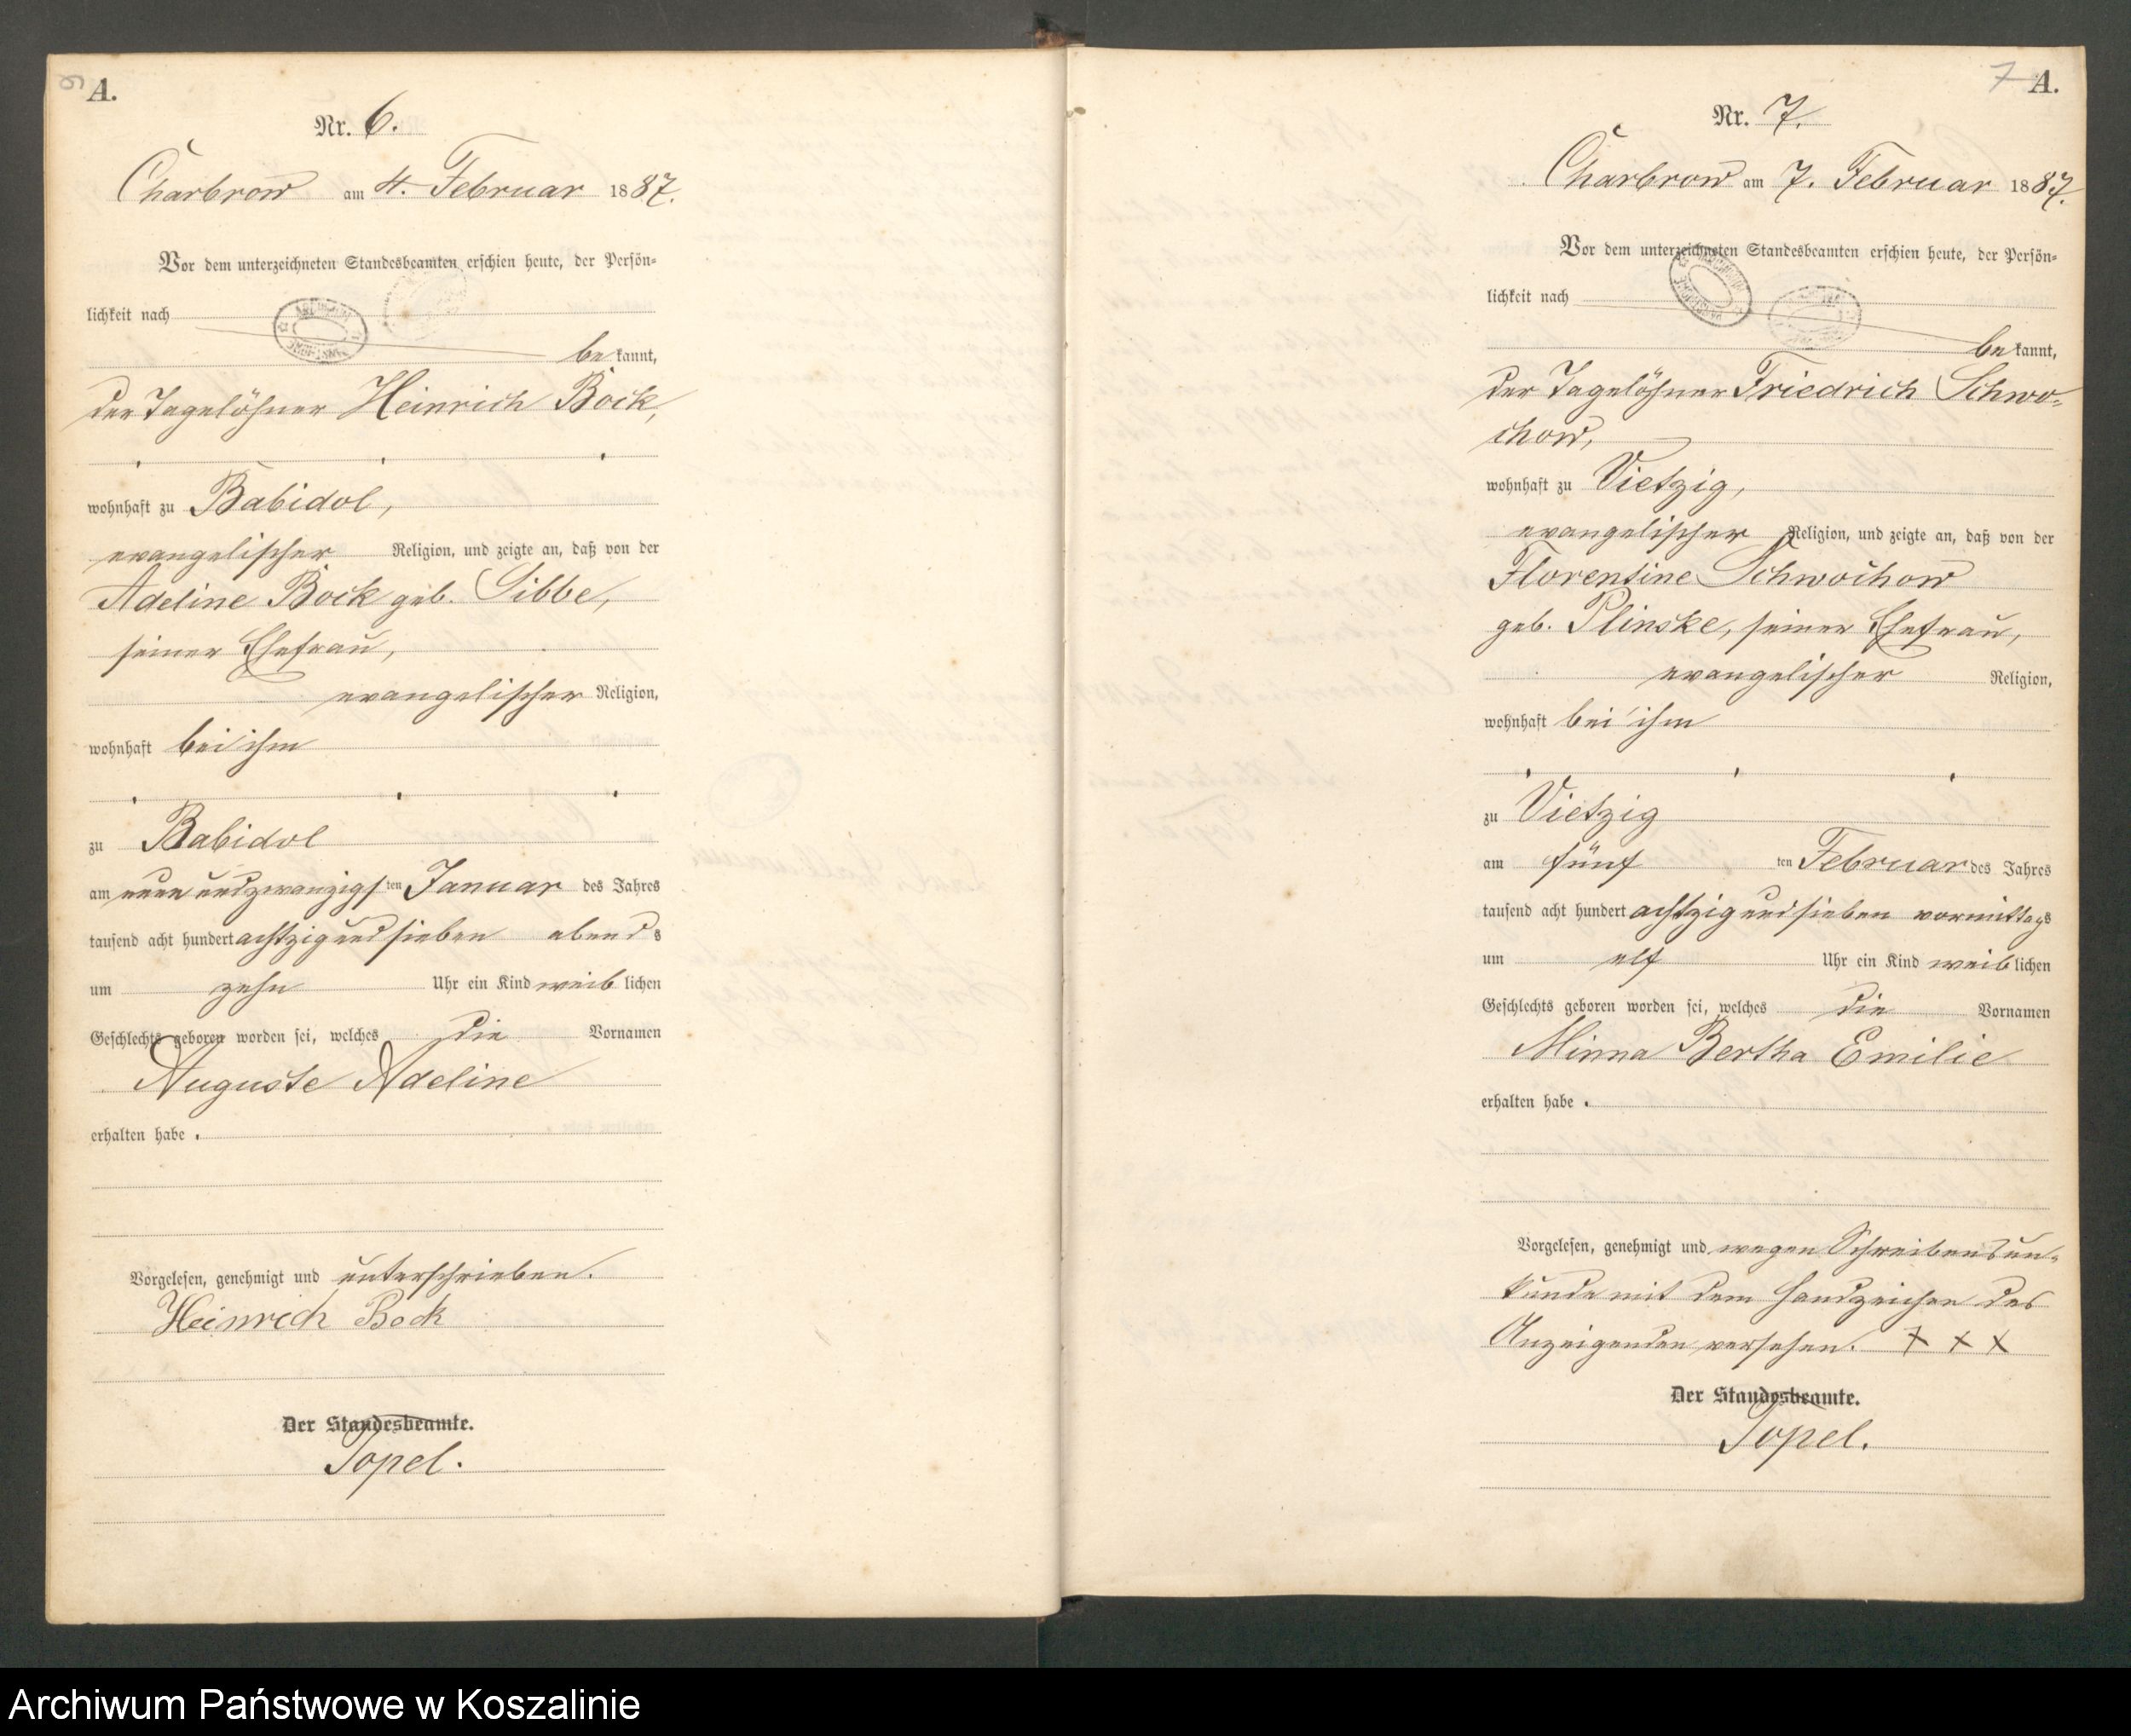 6
A.
Nr. 6.
Charbrow am 4. Februar 1887.
Vor dem unterzeichneten Standesbeamten erschien heute, der Persön-
lichkeit nach
bekannt,
der Tagelöhner Heinrich Bock,
wohnhaft zu Babidol,
evangelischer Religion, und zeigte an, daß von der
Adeline Bock geb. Libbe,
seiner Ehefrau,
evangelischer Religion,
wohnhaft bei ihm
zu Babidol
am neunundzwanzigsten Januar des Jahres
tausend acht hundert achtzig und sieben abends
um zehn Uhr ein Kind weiblichen
Geschlechts geboren worden sei, welches die Vornamen
Auguste Adeline
erhalten habe.
Vorgelesen, genehmigt und unterschrieben.
Heinrich Bock
Der Standesbeamte.
Topel.
7 A.
Nr. 7.
Charbrow am 7. Februar 1887.
Vor dem unterzeichneten Standesbeamten erschien heute, der Persön-
lichkeit nach
bekannt,
der Tagelöhner Friedrich Schwo-
chow,
wohnhaft zu Vietzig,
evangelischer Religion, und zeigte an, daß von der
Florentine Schwochow
geb. Plinske, seiner Ehefrau,
evangelischer Religion,
wohnhaft bei ihm
zu Vietzig
am fünften Februar des Jahres
tausend acht hundert achtzig und sieben vormittags
um elf Uhr ein Kind weiblichen
Geschlechts geboren worden sei, welches die Vornamen
Minna Bertha Emilie
erhalten habe.
Vorgelesen, genehmigt und wegen Schreibensun-
kunde mit dem Handzeichen des
Anzeigenden versehen. + + +
Der Standesbeamte.
Topel.
Archiwum Państwowe w Koszalinie